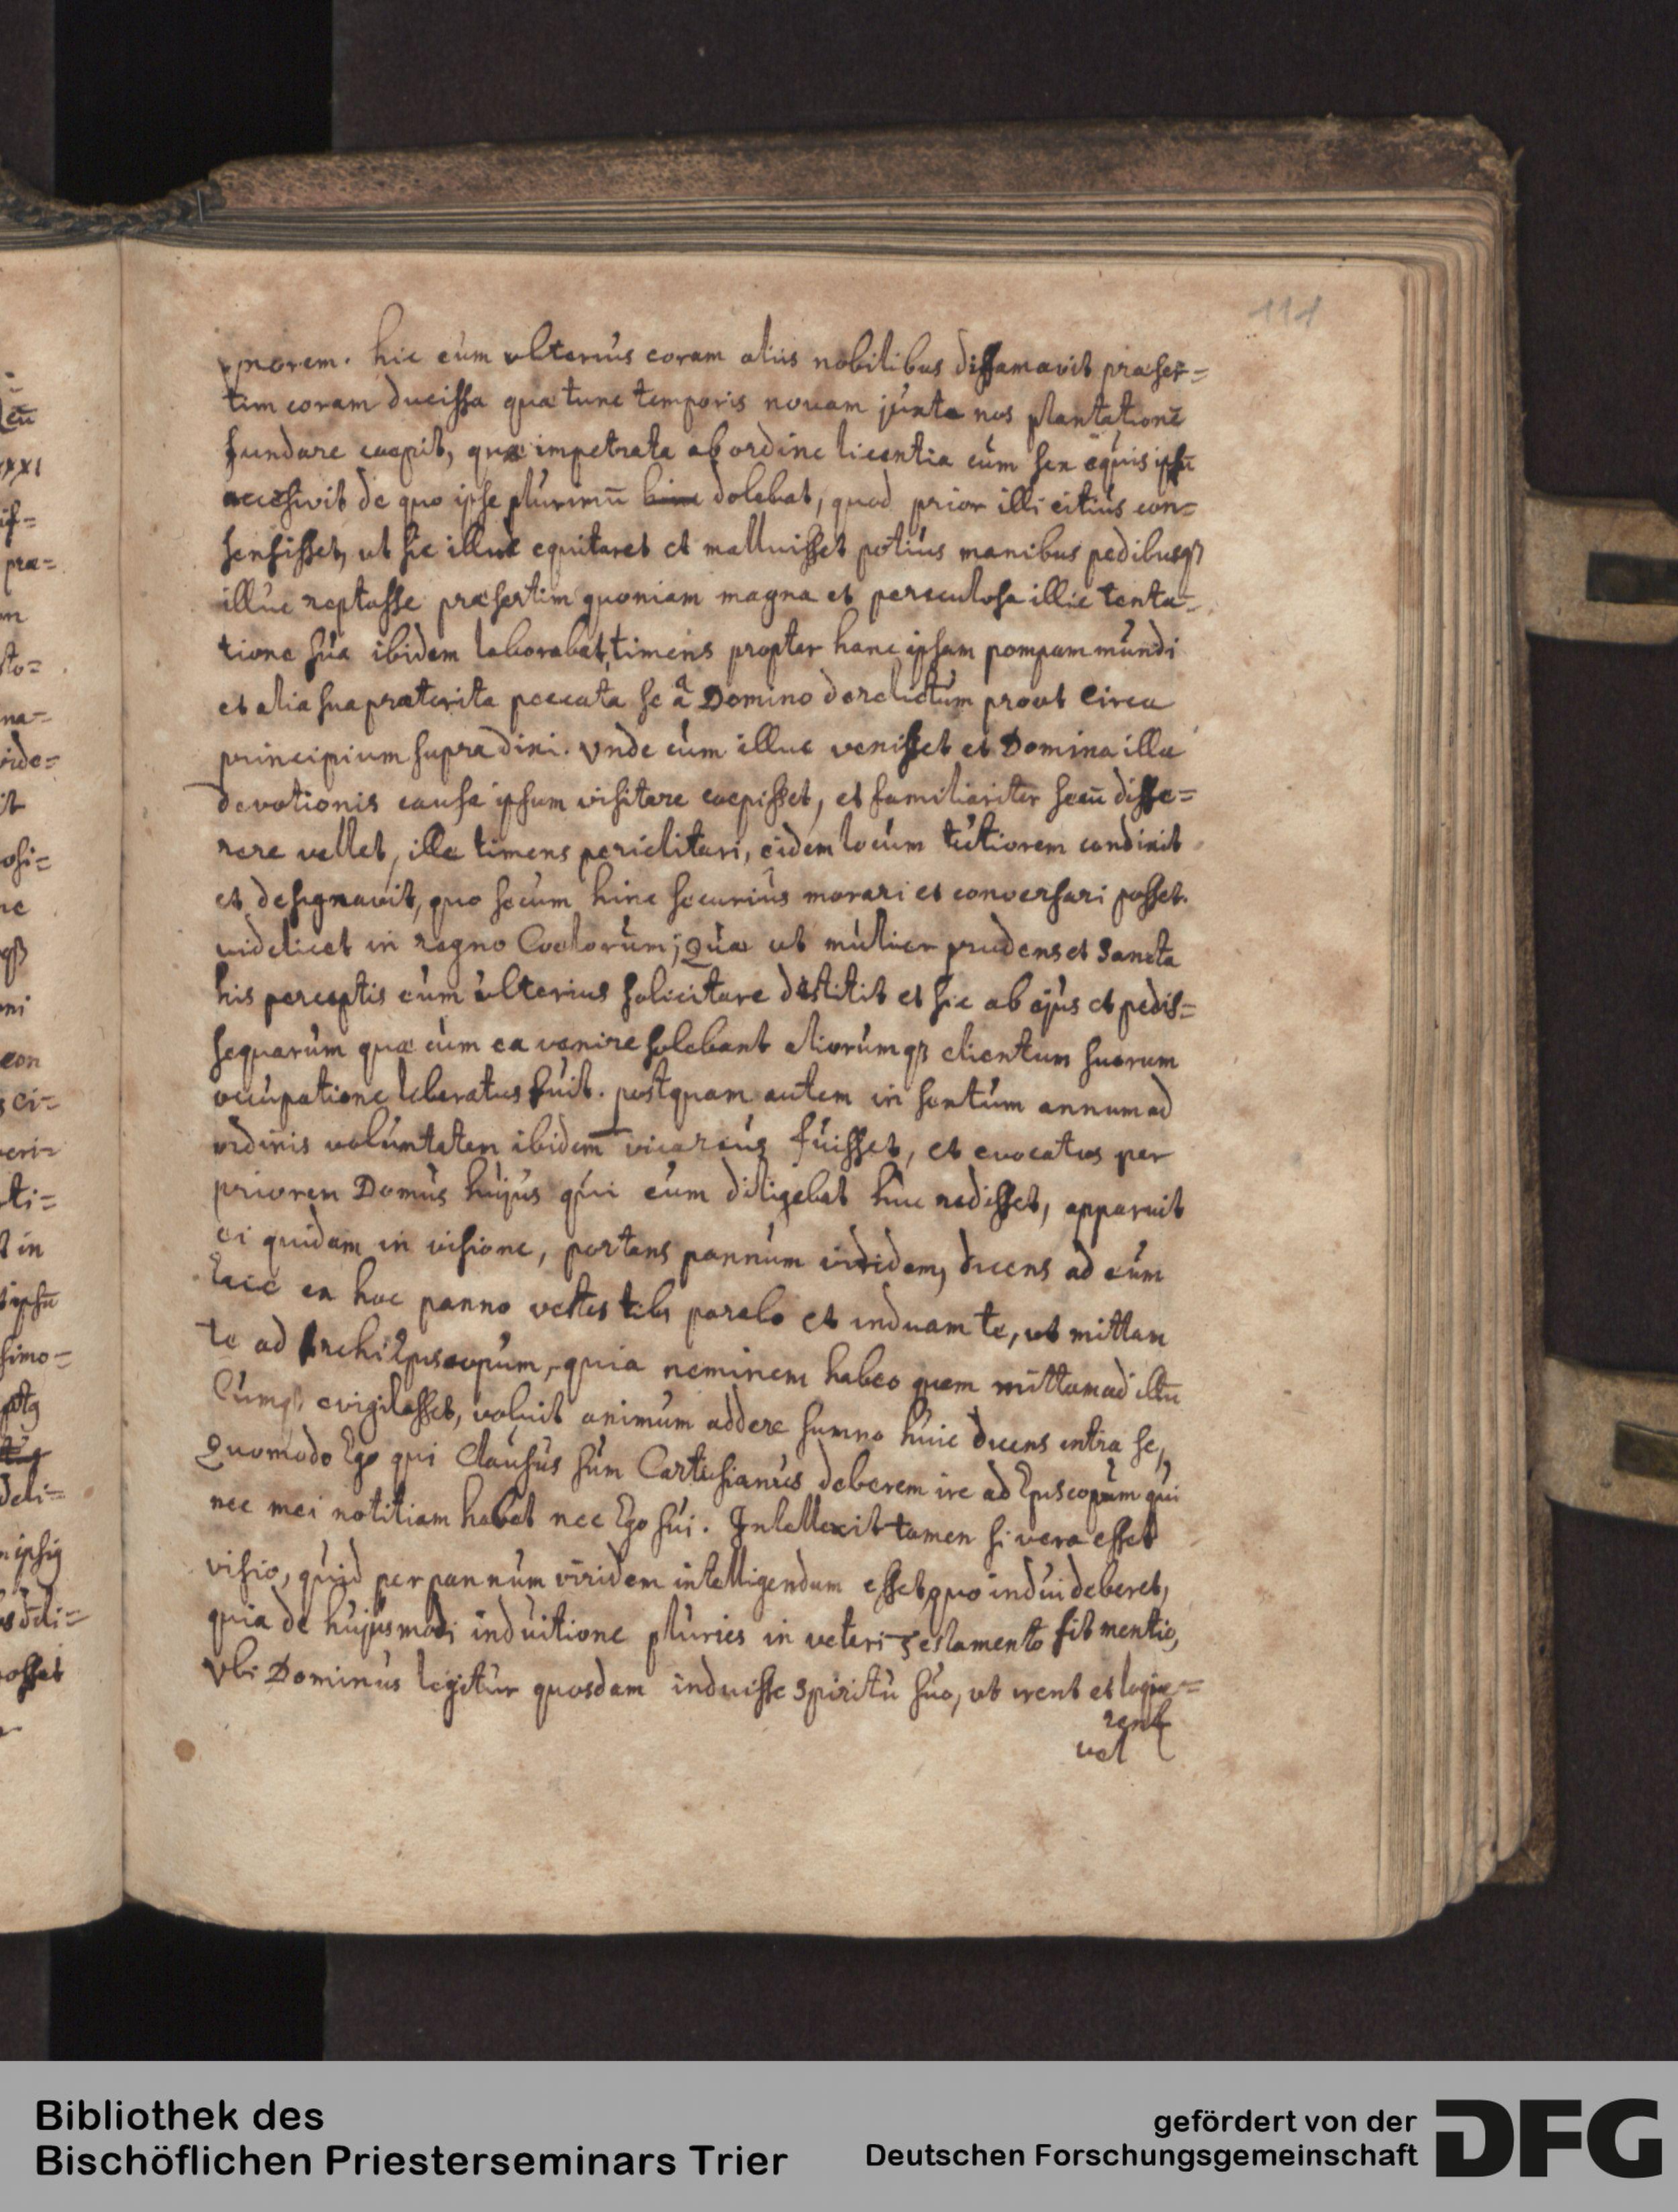 111
morem. hic eum ulterius coram aliis nobilibus diffamavit præser=
tim coram ducissa quæ tunc temporis novam juxta nos plantationē
fundare coepit, quæ impetrata ab ordine licentia eum sex equis ipsū
accesivit de quo ipse plurimū dolebat, quod prior illi citius con=
sensisset, ut sic illuc equitaret et malluisset potius manibus pedibusqȝ
illuc reptasse præsertim quoniam magna et periculosa illic tenta=
tione sua ibidem laborabat, timens propter hanc ipsam pompam mundi
et alia sua præterita peccata se à Domino derelictum prout circa
principium supra dixi. Unde cum illuc venisset et Domina illa
devotionis causa ipsum visitare coepisset, et familiariter secū disse=
rere vellet, ille timens periclitari, eidem locum tutiorem condixit
et designavit, quo secum hinc securius morari et conversari posset.
videlicet in regno Coelorum; Quæ ut mulier prudens et Sancta
his perceptis eum ulterius solicitare destitit et sic ab ejus et pedis=
sequarum quæ cum ea venire solebant aliorumqȝ clientum suorum
occupatione liberatus fuit. postquam autem in sextum annum ad
ordinis voluntatem ibidem vicarius fuisset, et evocatus per
priorem Domus hujus qui eum diligebat huc redisset, apparuit
ei quidam in visione, portans pannum viridem, dicens ad eum
Ecce ex hoc panno vestes tibi parabo et induam te, ut mittam
te ad ArchiEpiscopum, quia neminem habeo quem mittam ad illū
Cumqȝ evigilasset, voluit animum addere sumno huic dicens intra se,
Quomodo Ego qui Clausus sum Cartusianus deberem ire ad Episcopum qui
nec mei notitiam habet nec Ego sui. Intellexit tamen si vera esset
visio, quid per pannum viridem intelligendum esset, quo indui deberet,
quia de hujusmodi induitione pluries in veteri Testamento fit mentio,
Ubi Dominus legitur quosdam induisse Spiritu suo, ut irent et loque=
rent
vel
Bibliothek des
Bischöflichen Priesterseminars Trier
gefördert von der
Deutschen Forschungsgemeinschaft
DFG